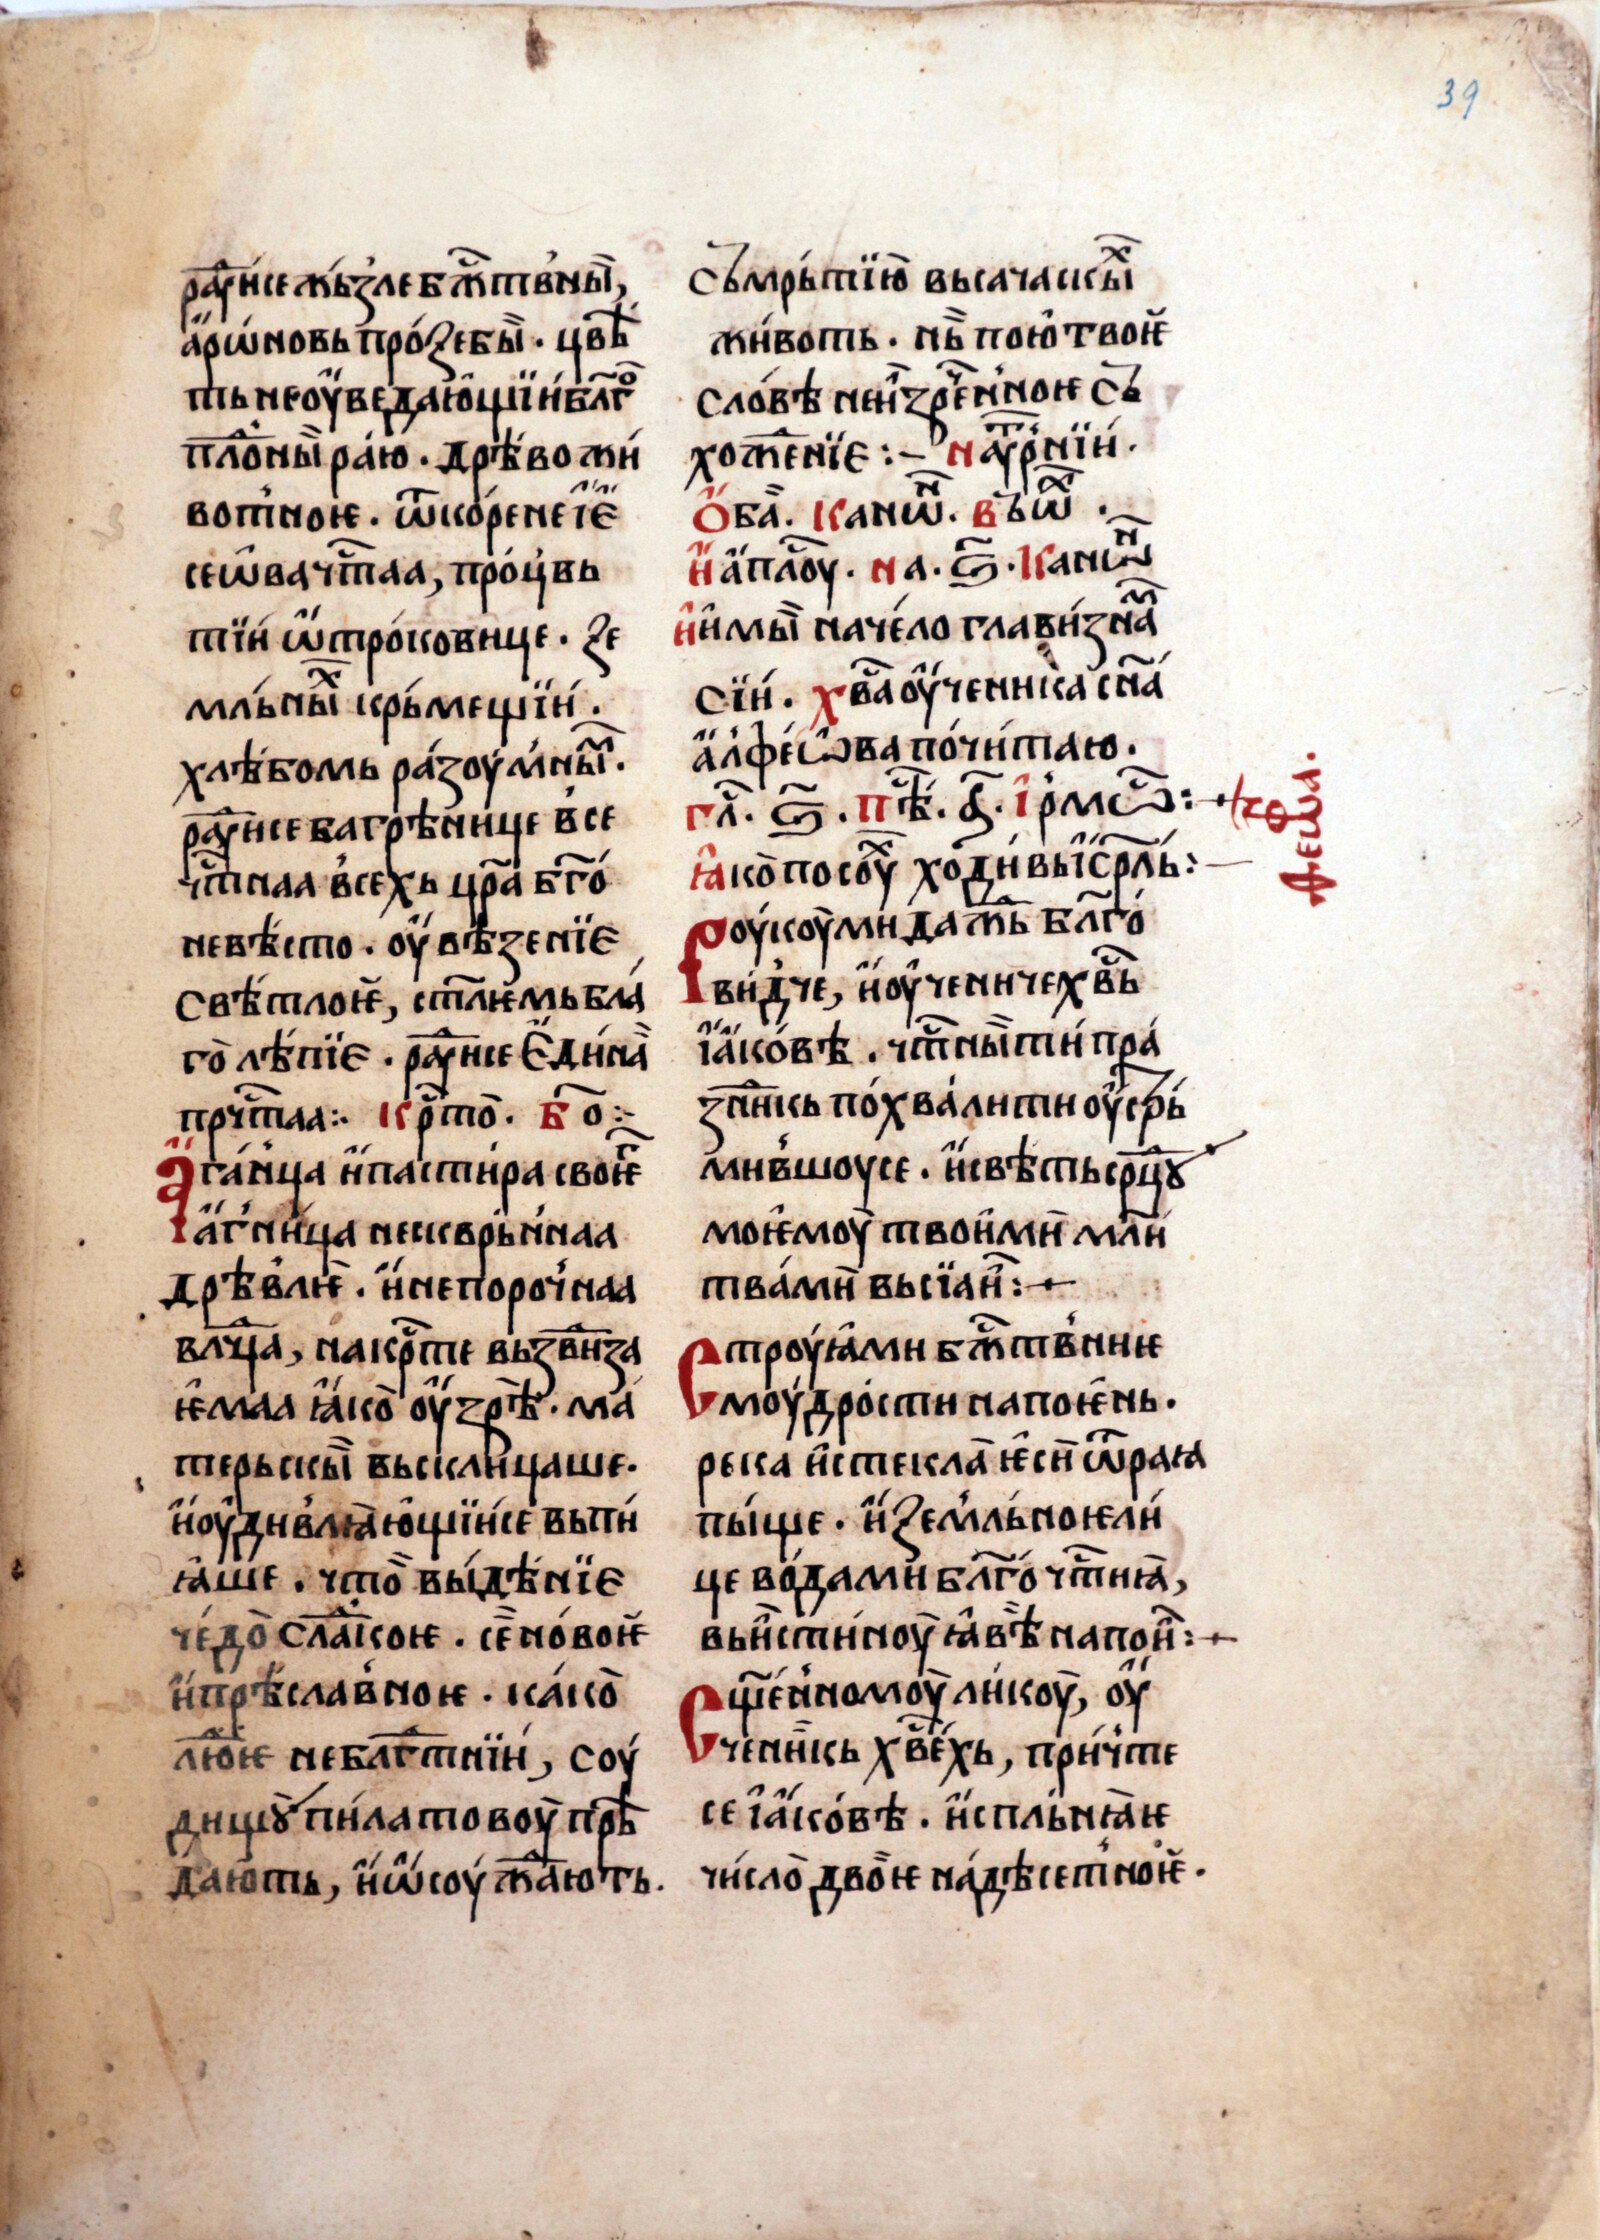 39
раⷣꙋисе жь́зле бжⷭ҇твны,
а҆́рѡ́новь про́зебы · цвѣ́
ть неоу҆ведаю҆́щїи блг҃о
плⷣо́ныи раю̀ . дрѣ́во жи
вотное . ѿ коренеїе
сеѡва чⷭ҇таа, про́цвь
тїи ѡ҆троковице . зе
мльныⷯ крьмещїи .
хлѣ́бомь ра́зоумныⷨ .
раⷣꙋисе багрѣнице все
чⷭ҇тнаа всехь цр҃а бг҃о
невѣсто . оу҆вѣзенїе
свѣ́тлое, ст҃лемь бла
го лѣ́пїе . раⷣꙋисе е҆ди́на
прчⷭ҇таа:· крⷭ҇то . бо :~
А҆га́нца и҆ пасти́ра свое
а҆гни́ца нескврьннаа
дрѣвле . и҆ непорочнаа
влⷣчца, на крⷭ҇те вьзвиⷤза
емаа ꙗ҆ко оу҆зрѣ . ма
терьскы вьскли́цаше .
и҆ оу҆дивлꙗю҆щїисе вьпи
ꙗ҆ше . что̀ вы́дѣнїе
че́до слⷣако́е . се но́вое
и҆ прѣславное . како
люⷣе не блгⷣтнїи, соу
дищꙋ̀ пи́латовоу прѣ
даю́ть, и҆ ѡ҆соу жⷣають .
съмрьтїю вьсачаскыⷯ
животь . нь пою̀ твое
сло́вѣ неи҆зре́нное съ
хожⷣенїе :~ на оутрнїи .
О҆ба . канѡⷩ . въ ѡⷯ .
и҆ а҆плⷭ҇оу . на . ѕ҃ . канѡⷩ
и҆имы начело главизнаⷨ
сїи . хв҃а оу҆ченика сн҃а
а҆лфеѡва почи́таю .
гл҃ . ѕ҃ . пѣⷭ . а҃ . і҆рмѡⷭ :~
феѡфа .
ꙗ҆ко по соуⷯ хо́дивь їсрл҃ь :~
Роукоу ми дажⷣь блг҃о
видче, и҆ оучениче хв҃ь
і҆а́ковѣ . чⷭ҇тныти пра
зⷣникь по́хвалити оу҆срь
мившоусе . и҆ свѣть срⷣцꙋ
моемоу твои҆ми мл҃и
твами вьсїаи :~
Строуꙗ҆ми бжⷭ҇твние
моу́дрости напое́нь .
река и҆стекла е҆си ѿ раꙗ
пы́ще . и҆ земльное ли
це во́дами блг҃о чⷭ҇тиꙗ,
вьи҆стиноу ꙗ҆вѣ напои :~
Сщ҃е́нномоу ли́коу, оу҆
ченикь хв҃е́хь, при́чте
се і҆а́ковѣ . и҆спльнꙗе
число̀ двое на́дѣсетное .